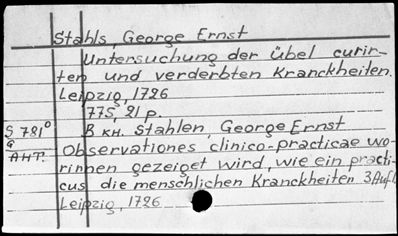 Stahls, George Ernst
Untersuchung der übel curir-
ten und verderbten Kranckheiten.
Leipzig, 1726
775, 21 p.
S 781⁰ В кн. Stahlen, George Ernst
a Observationes clinico-practicae wo-
АНТ. rinnen gezeiget wird, wie ein practi-
cus die menschlichen Kranckheiten 3 Aufl
Leipzig, 1726.